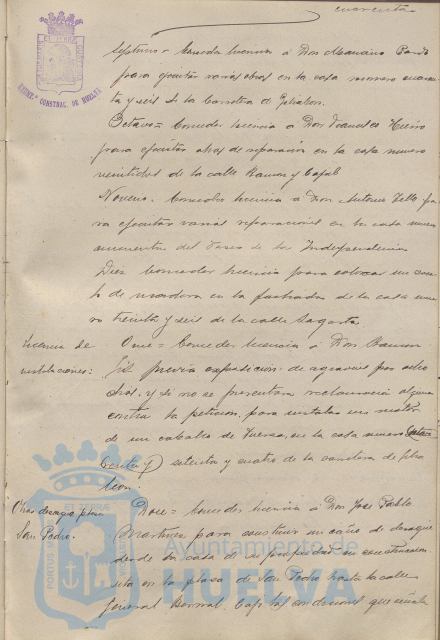 cuarenta
Septimo = Conceder licencia á Don Mariano Pardo
para ejecutar varias obras en la casa número cuaren-
ta y seis de la Carretera de Gibraleon.
Octavo = Conceder licencia á Don Francisco
para ejecutar obras de reparación en la casa número
veintidos de la calle Ramon y Cajal
Noveno. Conceder licencia á Don Antonio Tello pa-
ra ejecutar varias reparaciones en la casa número
cincuenta del Paseo de la Independencia
Diez Conceder licencia para colocar un
de madera en la fachada de la casa núme-
ro treinta y seis de la calle Sagasta
Licencia de instalaciones:
Once = Conceder licencia á Don Ramon
Gil previa exposicion de agravios por ocho
dias, y si no se presentara reclamación alguna
contra la peticion, para instalar un motor
de un caballo de fuerza, en la casa número
setenta y cuatro de la carretera de Gibra-
leon.
Obras desagüe plaza San Pedro.
Doce = Conceder licencia á Don José Pablo
Martinez para construir un caño de desagüe
desde la casa de su propiedad en construccion
sita en la plaza de San Pedro hasta la calle
General Bernal. Bajo las condiciones que señala
Ayuntamiento de
HUELVA